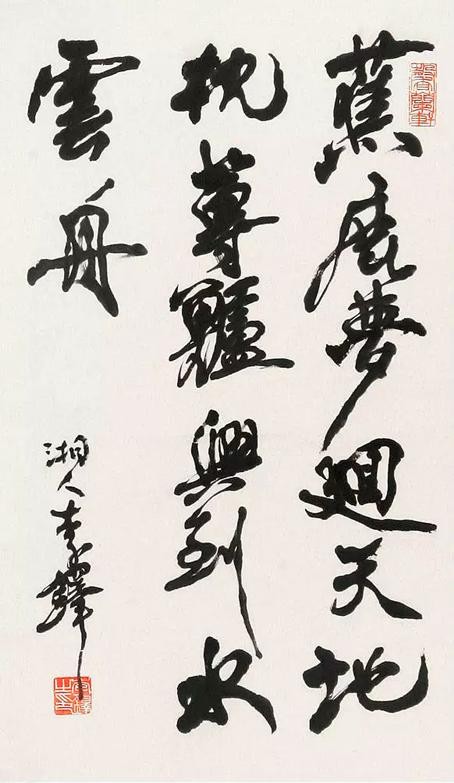 蕉鹿夢迴天地
枕蓴鱸興到水
雲舟
湘人李鐸